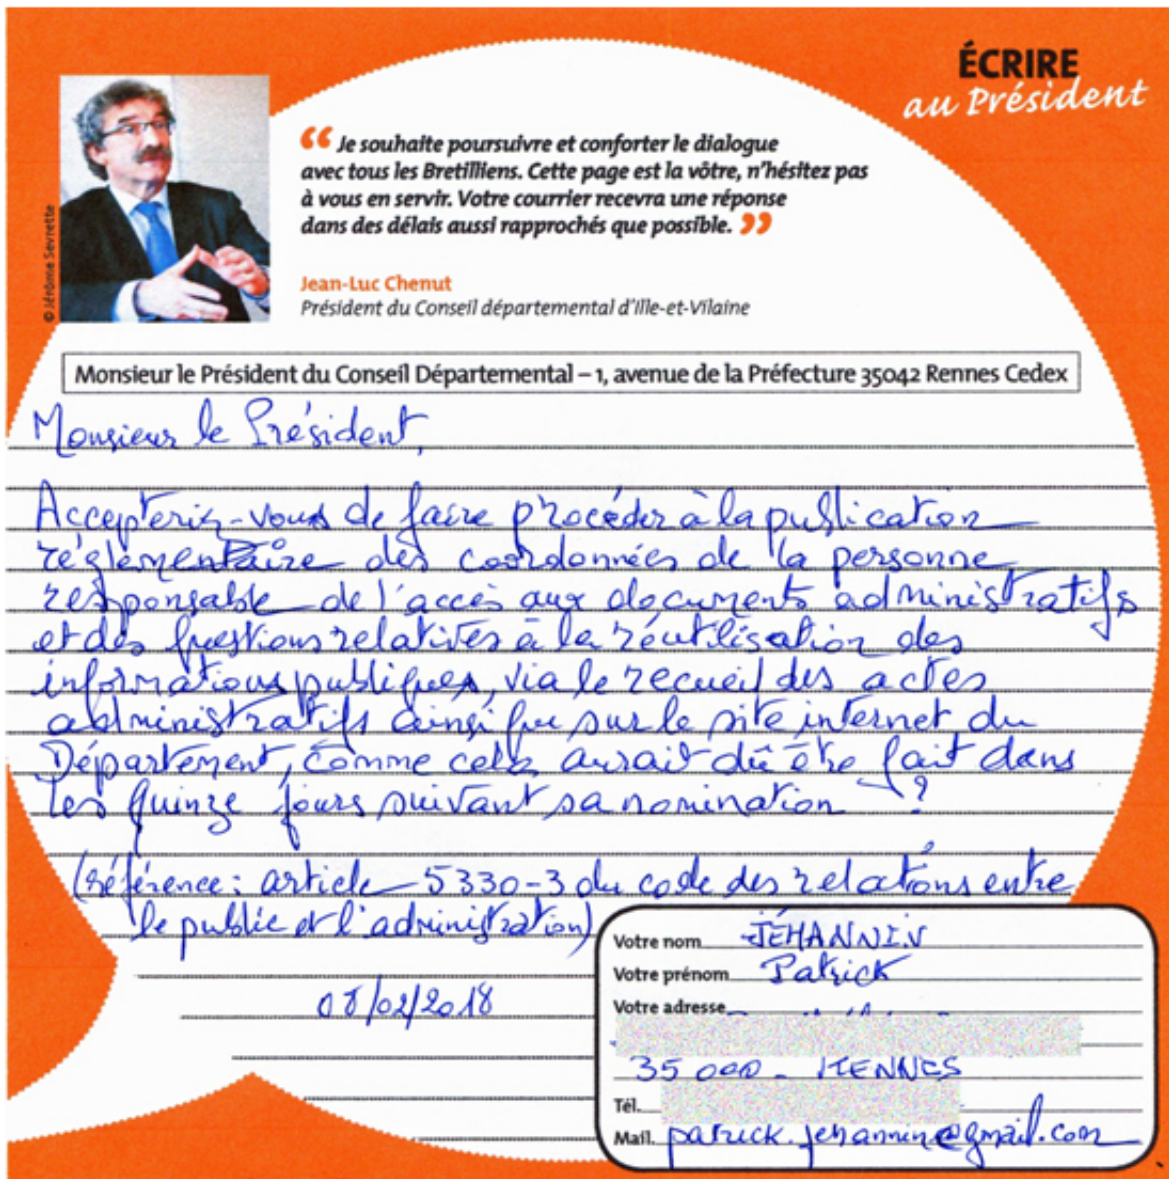 ÉCRIRE
au Président
“ Je souhaite poursuivre et conforter le dialogue
avec tous les Bretilliens. Cette page est la vôtre, n'hésitez pas
à vous en servir. Votre courrier recevra une réponse
dans des délais aussi rapprochés que possible. ”
© Jérôme Sevrette
Jean-Luc Chenut
Président du Conseil départemental d'Ille-et-Vilaine
Monsieur le Président du Conseil Départemental – 1, avenue de la Préfecture 35042 Rennes Cedex
Monsieur le Président,
Accepteriez-vous de faire procéder à la publication
réglementaire des coordonnées de la personne
responsable de l'accès aux documents administratifs
et des questions relatives à la réutilisation des
informations publiques, via le recueil des actes
administratifs ainsi que sur le site internet du
Département, comme cela aurait dû être fait dans
les quinze jours suivant sa nomination ?
(référence : article 5330-3 du code des relations entre
le public et l'administration)
08/02/2018
Votre nom JEHANNIN
Votre prénom Patrick
Votre adresse
35000 - RENNES
Tél.
Mail. patrick.jehannin@gmail.com